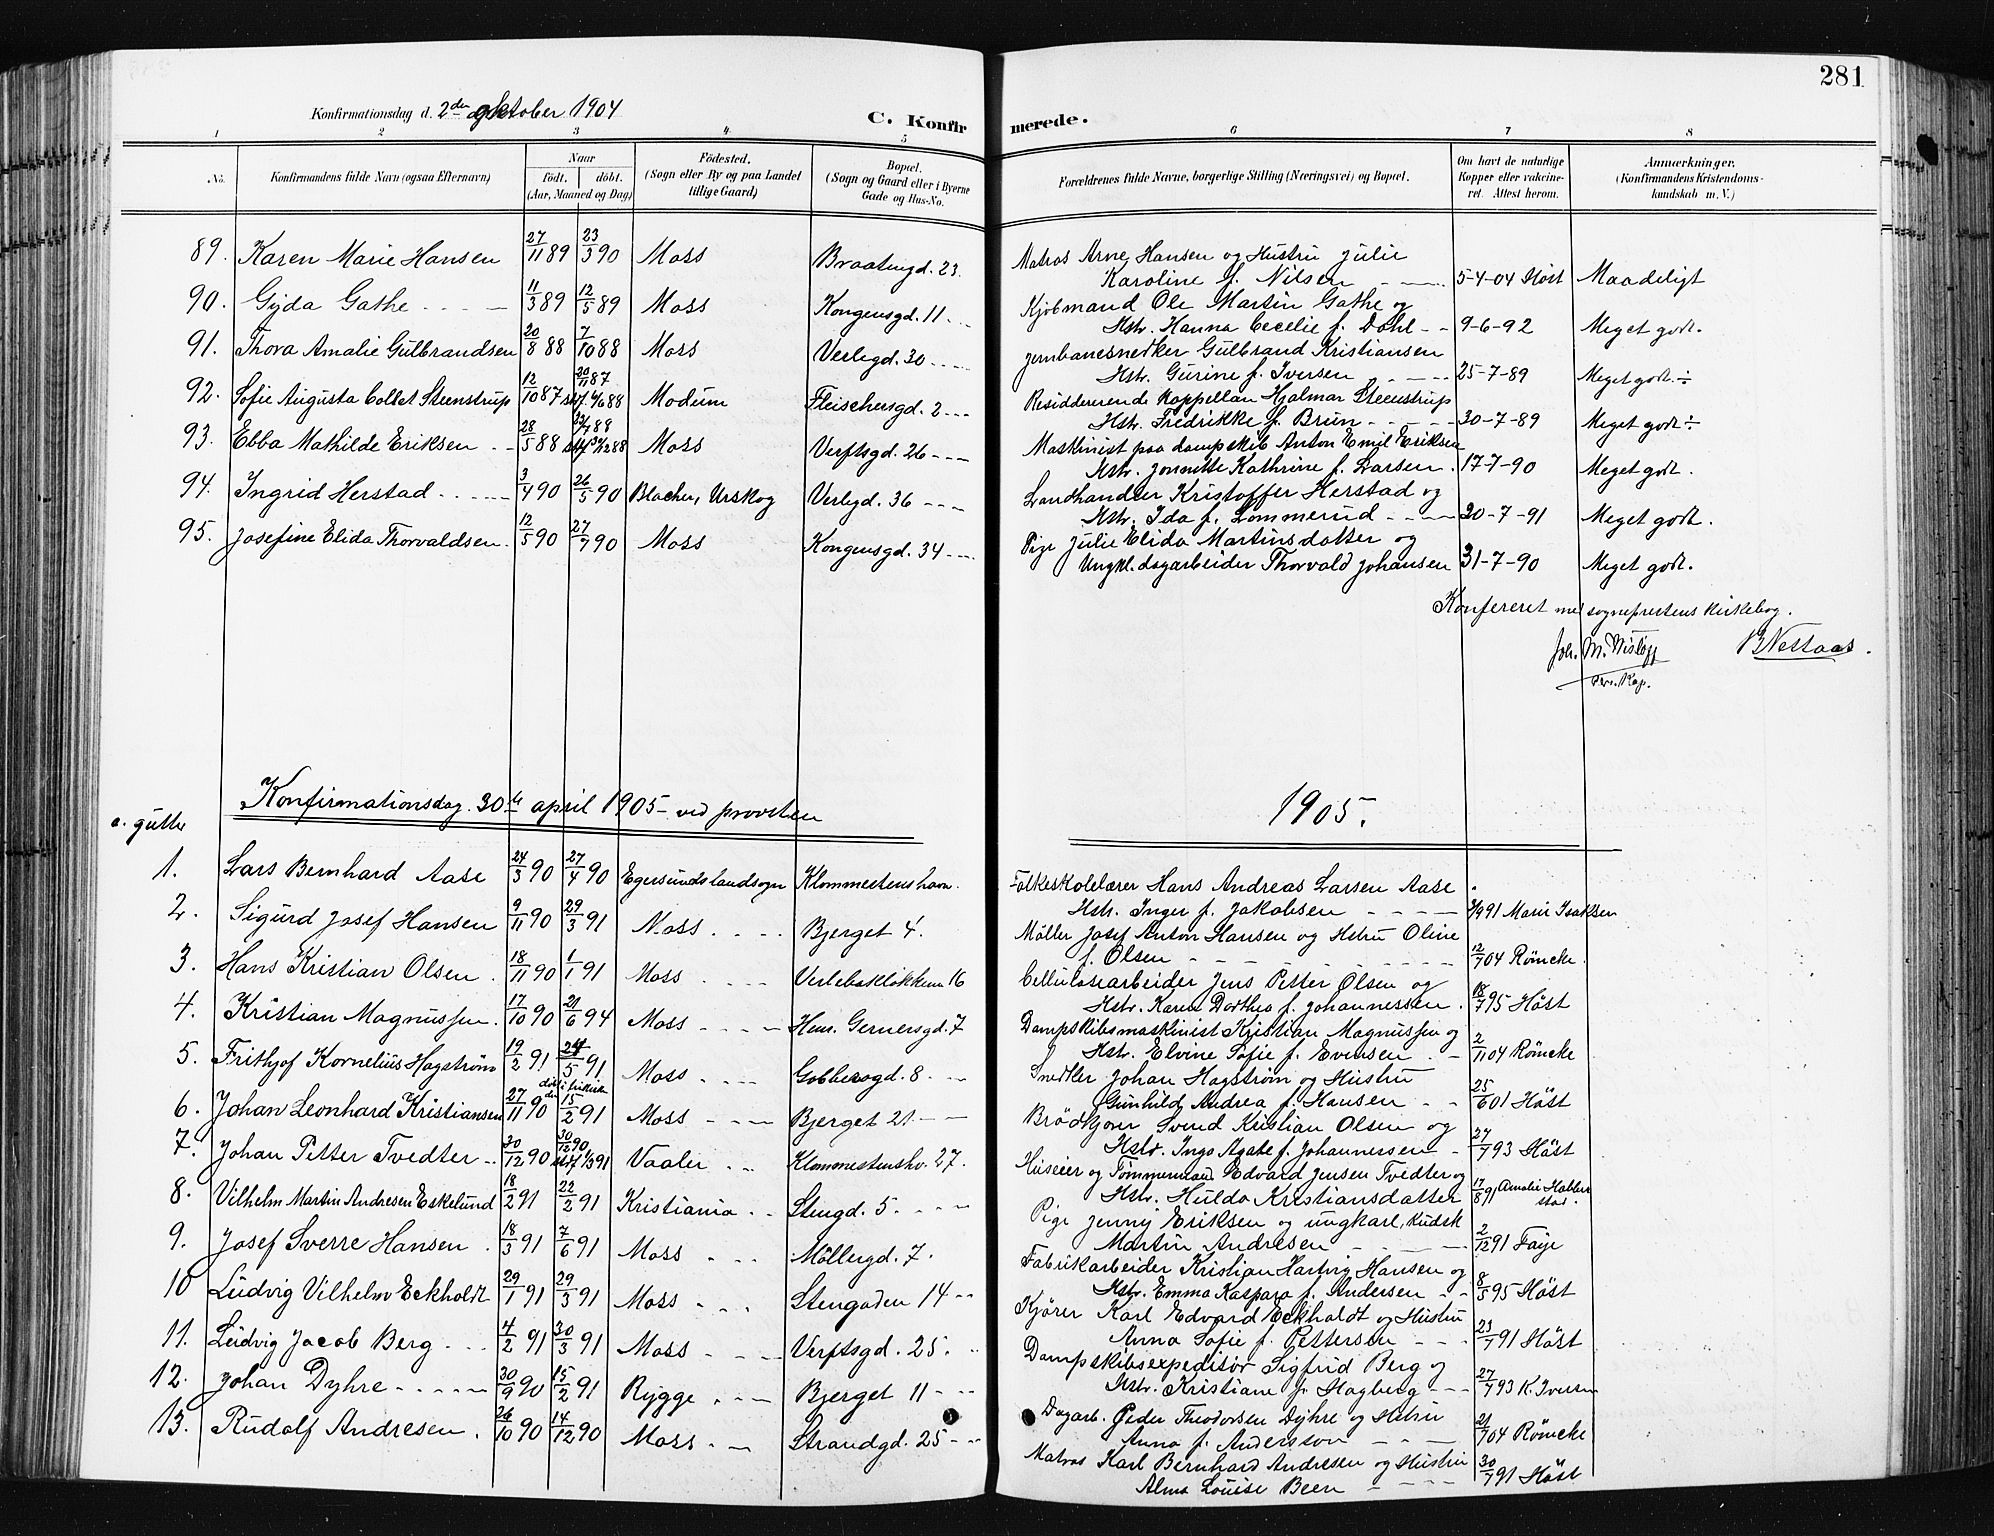 281
Konfirmationsdag d. 2den oktober 1904
C. Konfirmerede.
1 2 3 4 5 6 7 8
No. Konfirmandens fulde Navn (ogsaa Efternavn) Naar født. døbt. (Aar, Maaned og Dag) Fødested. (Sogn eller By og paa Landet tillige Gaard) Bopæl. (Sogn og Gaard eller i Byerne Gade og Hus-No. Forældrenes fulde Navne, borgerlige Stilling (Næringsvei) og Bopæl. Om havt de naturlige Kopper eller vakcineret. Attest herom. Anmærkninger. (Konfirmandens Kristendomskundskab m. V.)
89. Karen Marie Hansen 27/11 89 23/3 90 Moss Braatengd. 23. Matros Arne Hansen og Hustru Julie
Karoline f. Nilsen 5-4-04 Høst Maadeligt
90. Gyda Gathe 11/3 89 12/5 89 Moss Kongensgd. 11 Kjøbmand Ole Martin Gathe og
Hstr. Hanna Cecelie f. Dahl 9-6-92 Meget godt.
91. Thora Amalie Gulbrandsen 20/8 88 7/10 88 Moss Verlegd. 30 Jernbanesnedker Gulbrand Kristiansen
Hstr. Gurine f. Iversen 25-7-89 Meget godt ÷
92. Sofie Augusta Collet Steenstrup 12/10 87 20/11 87 Modum Fleischersgd. 2 Residderende Kappellan Hjalmar Steenstrup
Hstr. Fredrikke f. Brun 30-7-89 Meget godt ÷
93. Ebba Mathilde Eriksen 28/5 88 Moss Verftsgd. 26 Maskinist paa dampskib Anton Emil Eriksen
Hstr. Jonnette Kathrine f. Larsen. 17-7-90 Meget godt.
94. Ingrid Herstad 3/4 90 26/5 90 Blacher, Urskog Verlegd. 36 Landhandler Kristoffer Herstad og
Hstr. Ida f. Lommerud 20-7-91 Meget godt.
95. Josefine Elida Thorvaldsen 12/5 90 27/7 90 Moss Kongensgd. 34 Pige Julie Elida Martinsdatter og
Ungkl. dagarbeider Thorvald Johansen 31-7-90 Meget godt.
Konfereret med sogneprestens kirkebog.
Joh. M. Wisløff BNestaas.
Pers. Kap.
Konfirmationsdag 30te april 1905 ved provsten 1905.
a. gutter
1. Lars Bernhard Aase 24/3 90 27/4 90 Egersunds landsogn Klommestenshavn. Folkeskolelærer Hans Andreas Larsen Aase
Hstr. Inger f. Jakobsen 91 Marie Isaksen
2. Sigurd Josef Hansen 9/11 90 29/3 91 Moss Bjerget 4. Møller Josef Anton Hansen og Hstru Oline
f. Olsen 12/7 04 Römcke.
3. Hans Kristian Olsen 18/11 90 1/1 91 Moss Verlebakløkken 16 Cellulosearbeider Jens Petter Olsen og
Hstr. Karen Dorthea f. Johannessen 18/7 95 Høst
4. Kristian Magnussen 17/10 90 21/6 94 Moss Henr. Gernersgd. 7 Dampskibsmaskinist Kristian Magnussen og
Hstr. Elvine Sofie f. Evensen 2/11 04 Römcke
5. Frithjof Kornelius Hagstrøm 19/2 91 24/5 91 Moss Gobbersgd. 8 Snedker Johan Hagstrøm og Hustru
Gunhild Andrea f. Hansen 25/6 01 Høst
6. Johan Leonhard Kristiansen 27/11 90 15/2 91 Moss Bjerget 21 Brødkjører Svend Kristian Olsen og
Hstr. Inga Agate f. Johannessen 27/7 93 Høst
7. Johan Petter Tvedter 30/12 90 30/12 90 Vaaler Klommestenshv. 27. Huseier og Tømmermand Edvard Jensen Tvedter og
Hstr. Hulda Kristiansdatter 17/8 91 Amalie Habberstad.
8. Vilhelm Martin Andresen Eskelund 18/2 91 22/2 91 Kristiania Stengd. 5 Pige Jenny Eriksen og ungkarl, kudsk
Martin Andresen 2/12 91 Faye
9. Josef Sverre Hansen 18/3 91 7/6 91 Moss Møllergd. 7. Fabrikarbeider Kristian Hartvig Hansen og
Hstr. Emma Kaspara f. Andersen 8/5 95 Høst
10 Ludvig Vilhelm Eckholdt 29/1 91 29/3 91 Moss Stengaden 14 Kjører Karl Edvard Eckholdt og Hustru
Anna Sofie f. Pettersen 23/7 91 Høst
11. Ludvig Jacob Berg 4/2 91 30/3 91 Moss Verftsgd. 25. Dampskibsexpeditør Sigfrid Berg og
Hstr. Kristiane f. Hagberg 27/7 93 K. Iversen
12. Johan Dyhre 30/9 90 15/2 91 Rygge Bjerget 11 Dagarb. Peder Theodorsen Dyhre og Hstru
Anna f. Andersson 21/7 04 Römcke
13. Rudolf Andresen 26/10 90 14/12 90 Moss Strandgd. 25 Matros Karl Bernhard Andresen og Hustru
Alma Louise Been 30/7 91 Høst